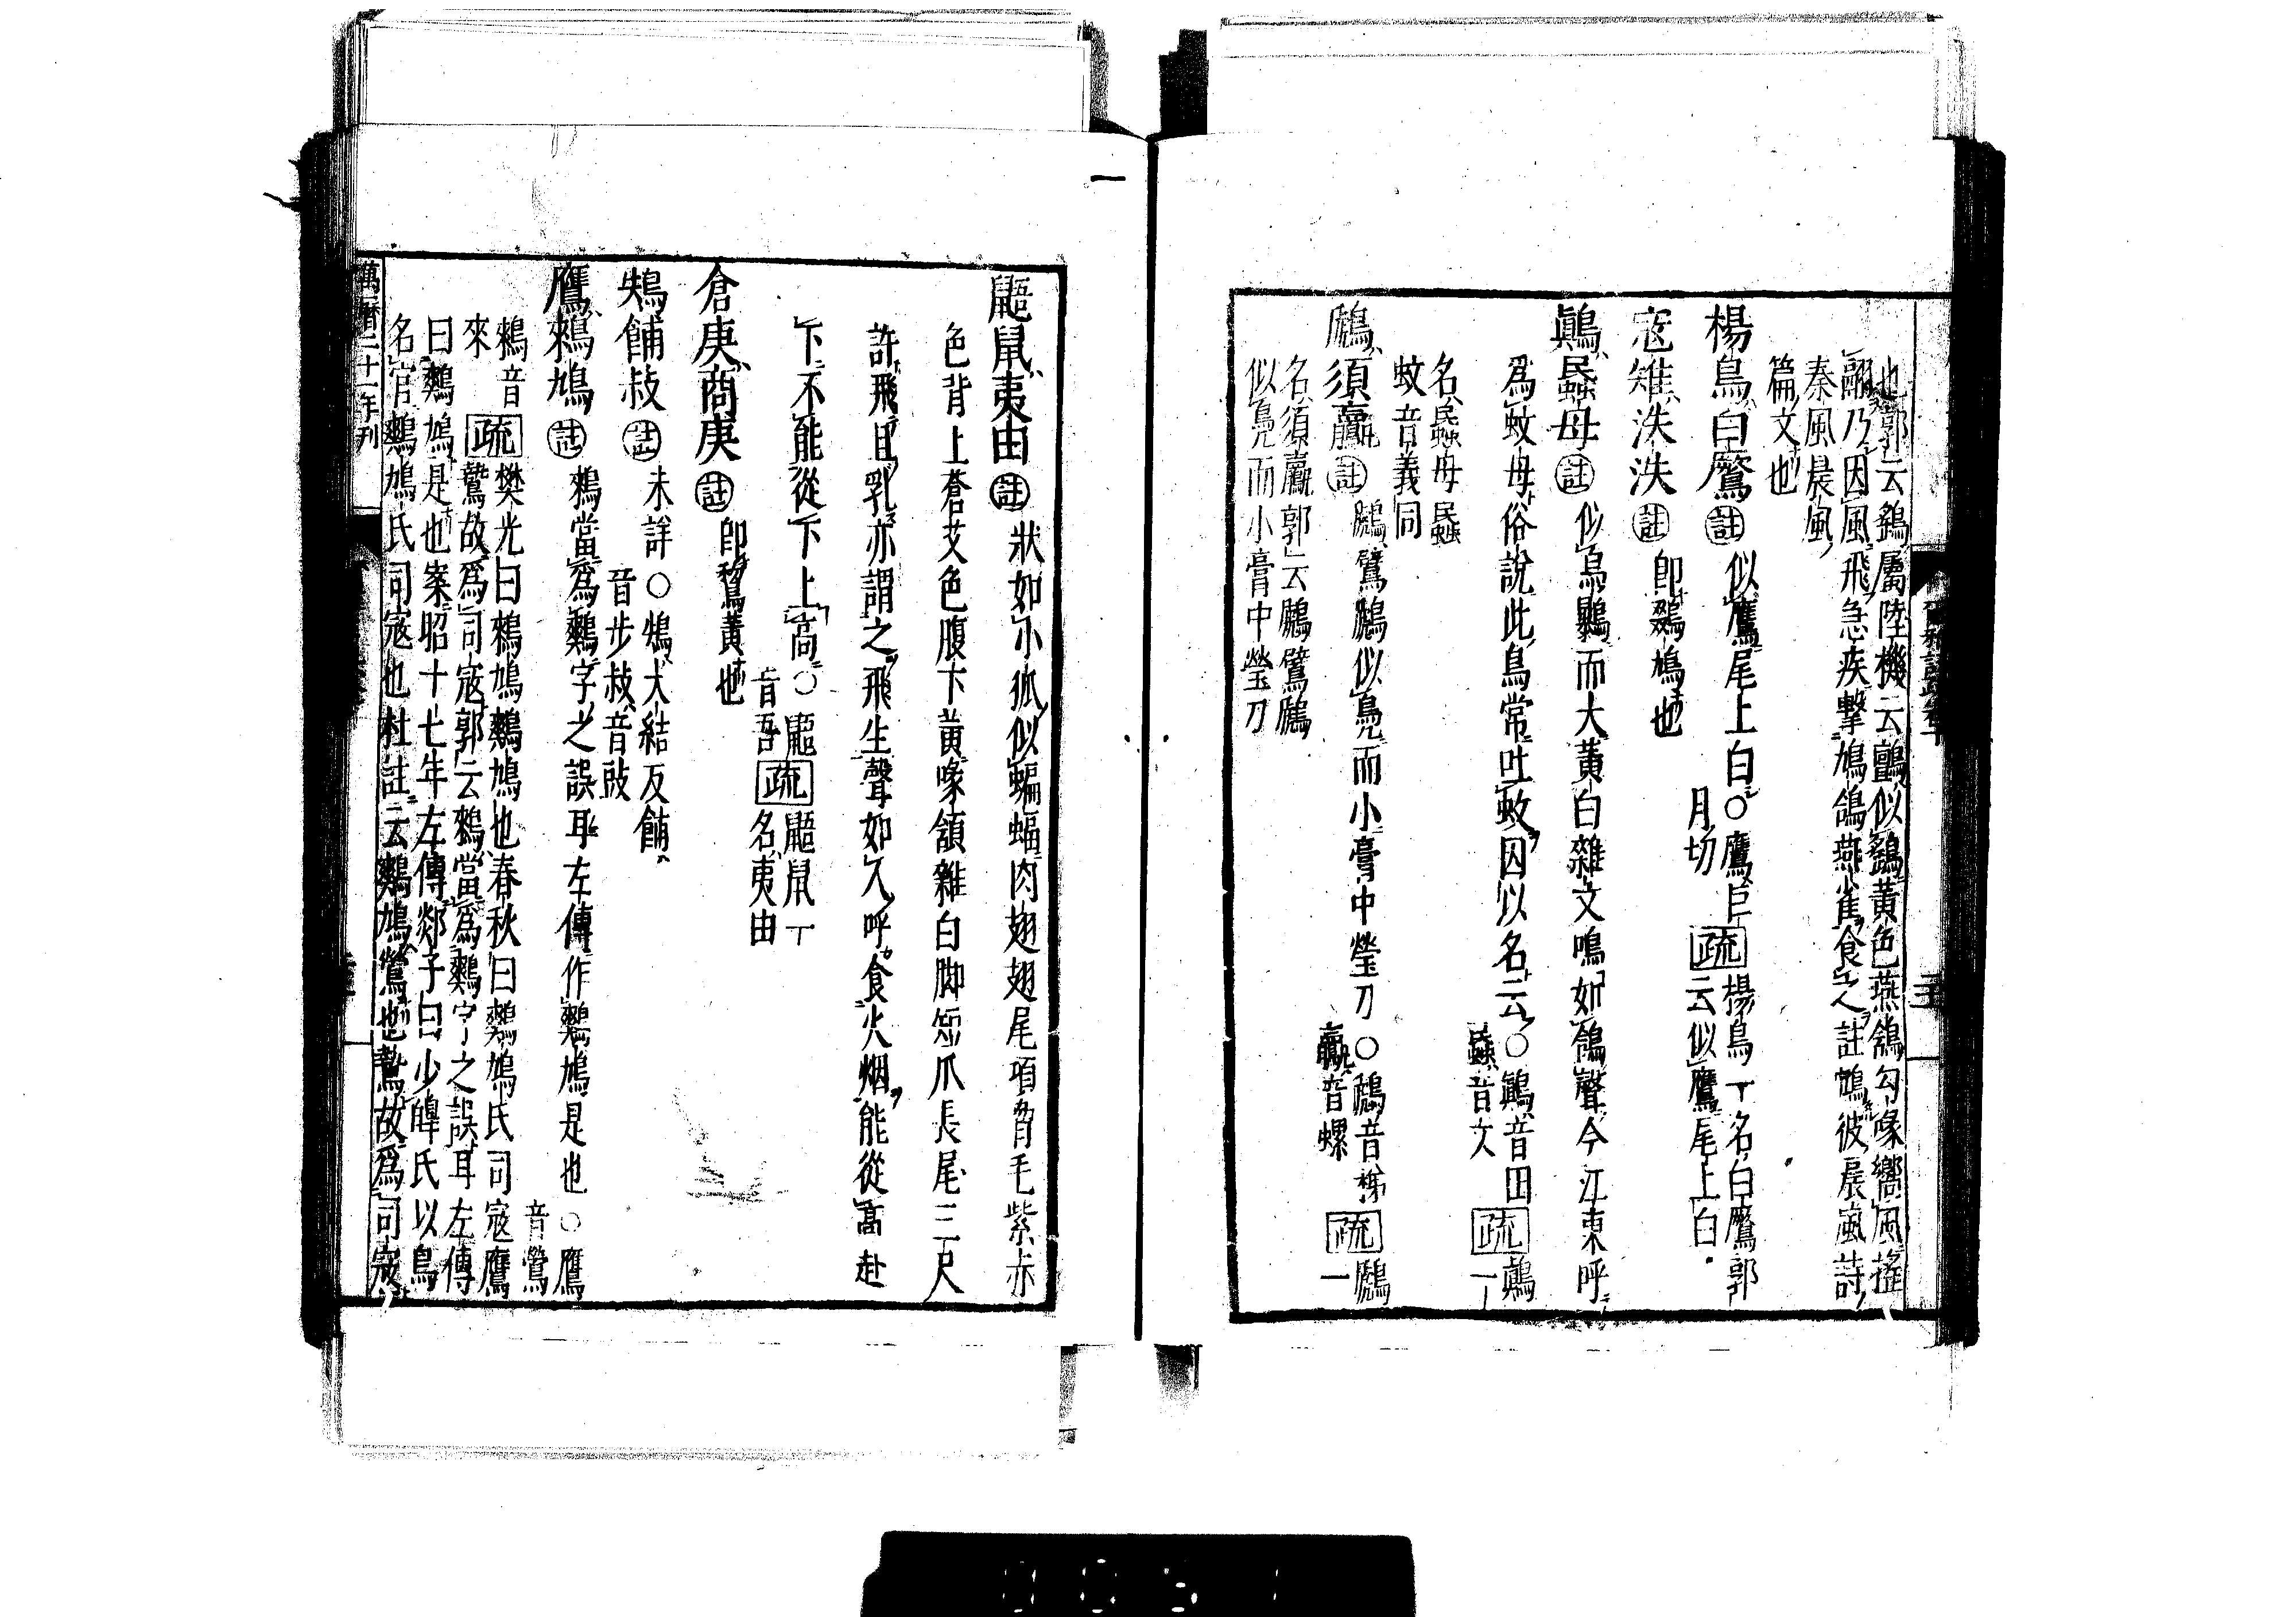 也郭云鷂屬陸機云鸇似鷂黃色燕鴿勾喙嚮風搖
翮乃因風飛急疾擊鳩鴿燕雀食之註鴥彼晨風詩
秦風晨風
篇文也
楊鳥白鷢註似鷹尾上白○鷹巨
月切
疏楊鳥一名白鷹郭
云似鷹尾上白
寇雉泆泆註即鵽鳩也
鷏蟁母註似烏鷃而大黃白雜文鳴如鴿聲今江東呼
為蚊母俗說此鳥常吐蚊因以名云○鷏音田
蟁音文
疏鷏一
名蟁母蟁
蚊音義同
鷉須鸁註鷉鷿鷉似鳧而小膏中瑩刀○鷉音梯
鸁音螺
疏鷉一
名須鸁郭云鷉鷿鷉
似鳧而小膏中瑩刀
鼯鼠夷由註狀如小狐似蝙蝠肉翅翅尾項脅毛紫赤
色背上蒼艾色腹下黃喙頷雜白脚短爪長尾三尺
許飛且乳亦謂之飛生聲如人呼食火烟能從高赴
下不能從下上高○鼯
音吾
疏鼯鼠一
名夷由
倉庚商庚註即鵹黃也
鴩餔敊註未詳○鴩大結反餔
音步敊音豉
鷹鶆鳩註鶆當為鷞字之誤耳左傳作鷞鳩是也○鷹
音鶯
鶆音
來
疏樊光曰鶆鳩鷞鳩也春秋曰鷞鳩氏司寇鷹
鷙故為司寇郭云鶆當為鷞字之誤耳左傳
曰鷞鳩是也案昭十七年左傳郯子曰少皥氏以鳥
名官鷞鳩氏司寇也杜註云鷞鳩鷹也鷙故為司寇
萬曆二十一年刊